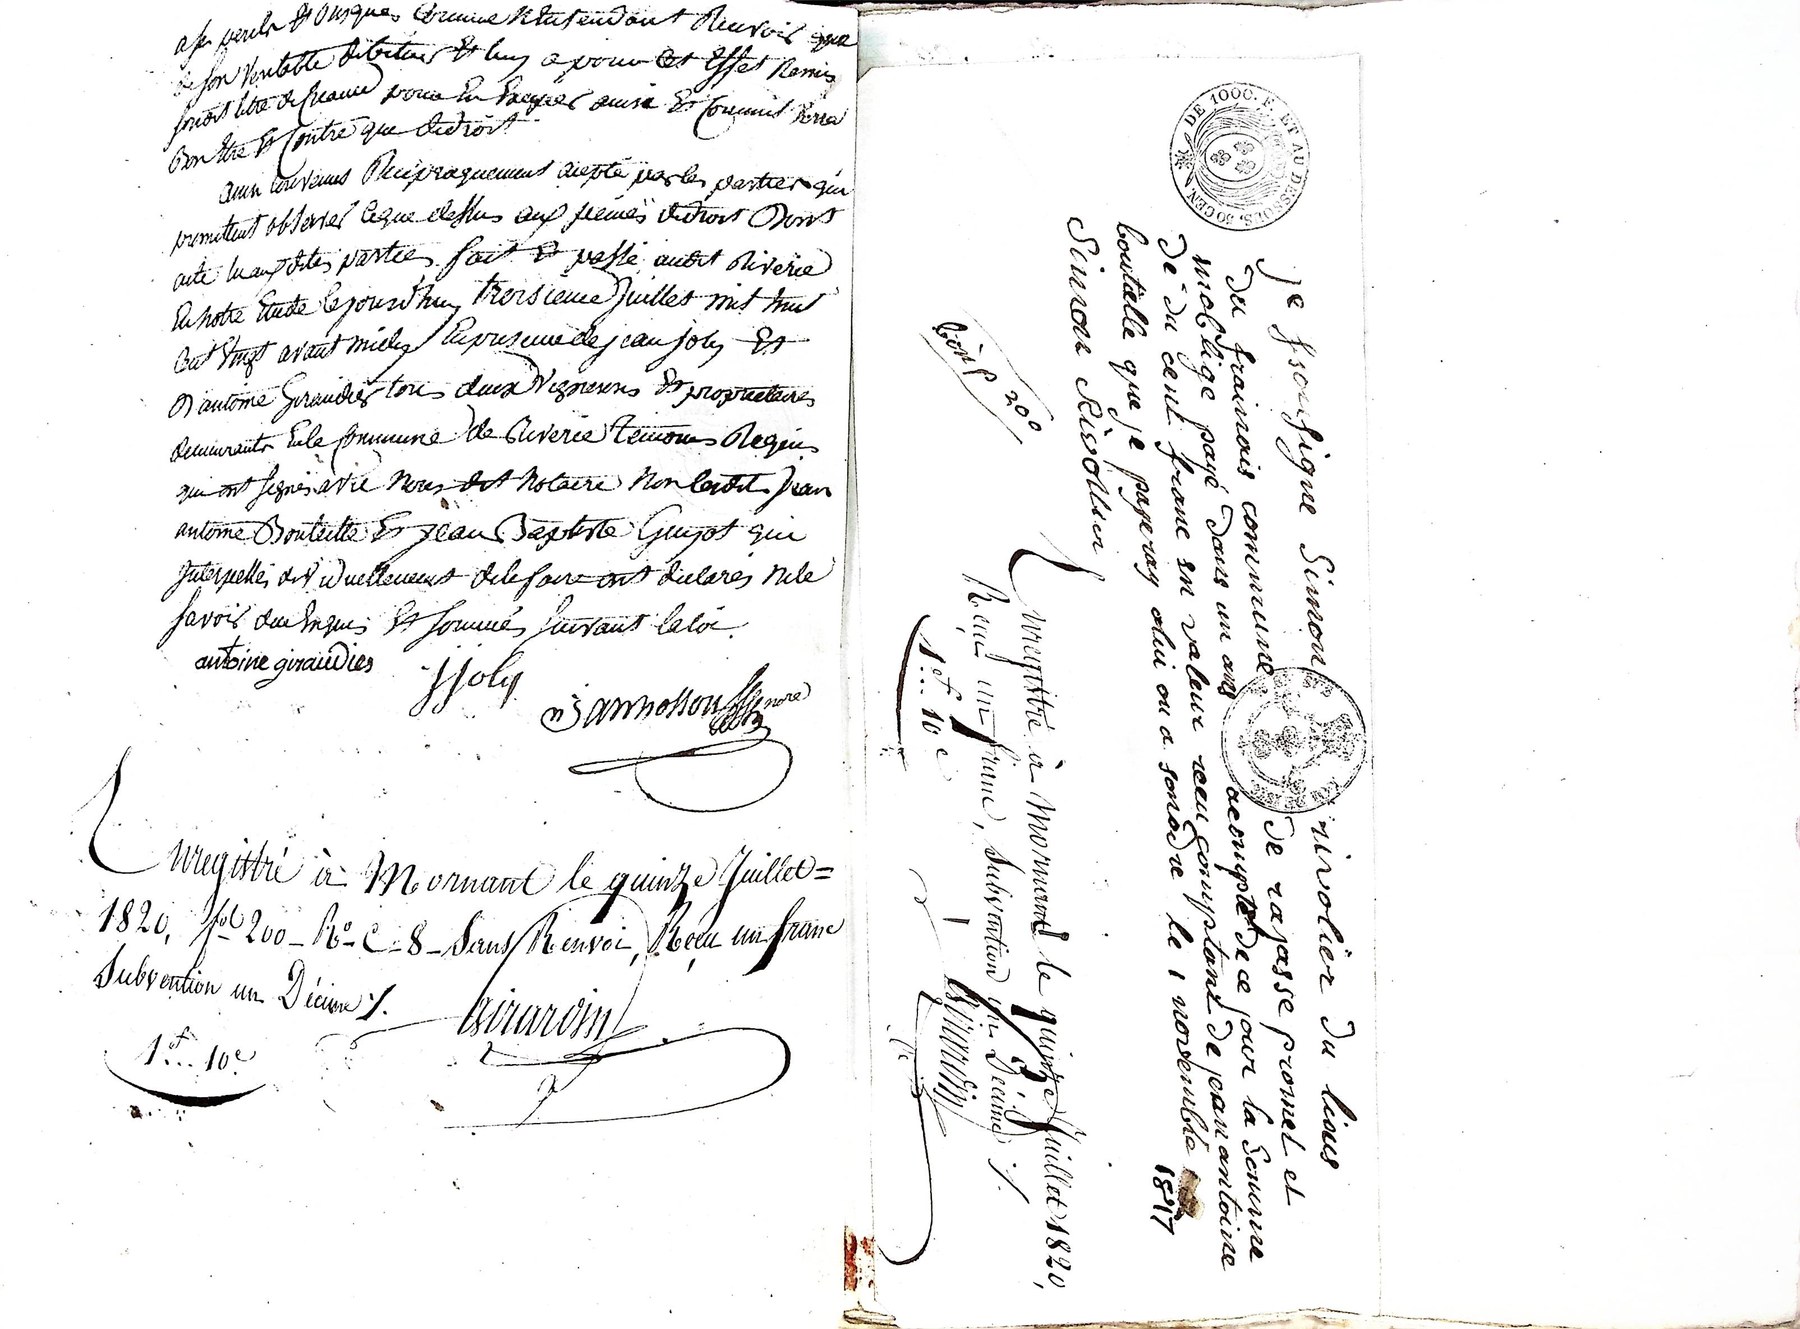 a ses perils et risques comme n'entendant recevoir que
de son veritable debiteur et luy a pour cet effet remis
sondit titre de creance pour en exiger ainsi et comme il verra
bon etre et contre que de droit
ainsi convenus reciproquement accepté par les parties qui
promettent observer ce que dessus aux peines de droit dont
acte lu auxdites parties fait et passé audit Riverie
en notre Etude le jourd'huy troisieme Juillet mil huit
cent vingt avant midy en presence de jean joly et
d'antoine Giraudier tous deux vignerons et proprietaires
demeurants en la commune de Riverie temoins Requis
qui ont signés avec nous dit notaire non lesdits Jean
antoine Bouteille et jean Baptiste Guyot qui
interpellés individuellement de le faire ont declarés ne le
savoir due enquis et sommés suivant la loi
antoine giraudier
J Joly
Enregistré à Mornant le quinze Juillet =
1820, fol 200 - Ro - C - 8 - Sans Renvoi, Reçu un franc
Subvention un Décime ./.
Girardin
1f... 10c
DE 1000. F. ET AU DESSUS. 50 CEN.
je sousigne Simon rivolier du lious
du frainois commune de rajasse promet et
mobligé payé dans un ans acomptè de ce jour la somme
de du cent franc en valeur recu comptant de jean antoine
boutielle que je payeray alui ou a sonodre le 1 novembre
1817
Simon Rivollier
bon p 200
Enregistré à Mornant le quinze Juillet 1820,
Reçu un franc, Subvention un Décime ./.
1f... 10c
Girardin